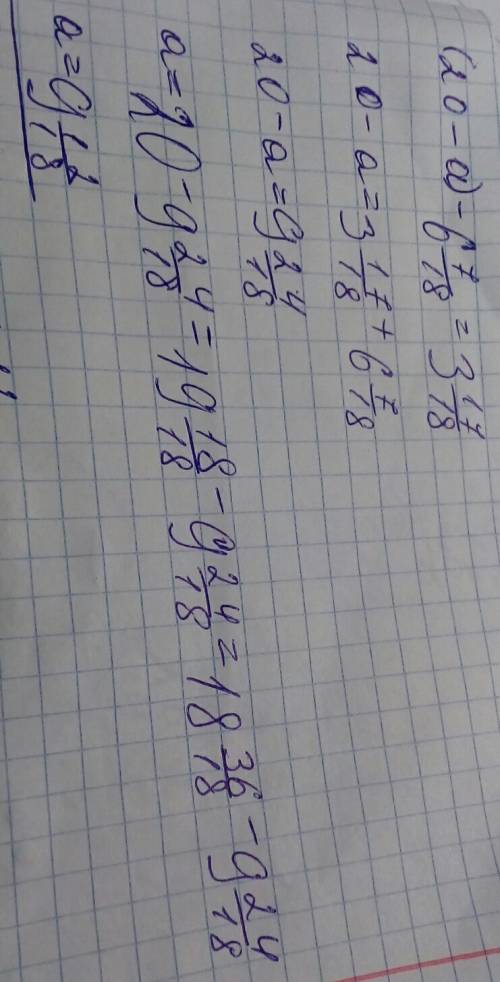 (20 - a) - 6 7/18 = 3 17/18
20 - a = 3 17/18 + 6 7/18
20 - a = 9 24/18
a = 20 - 9 24/18 = 19 18/18 - 9 24/18 = 18 36/18 - 9 24/18
a = 9 12/18